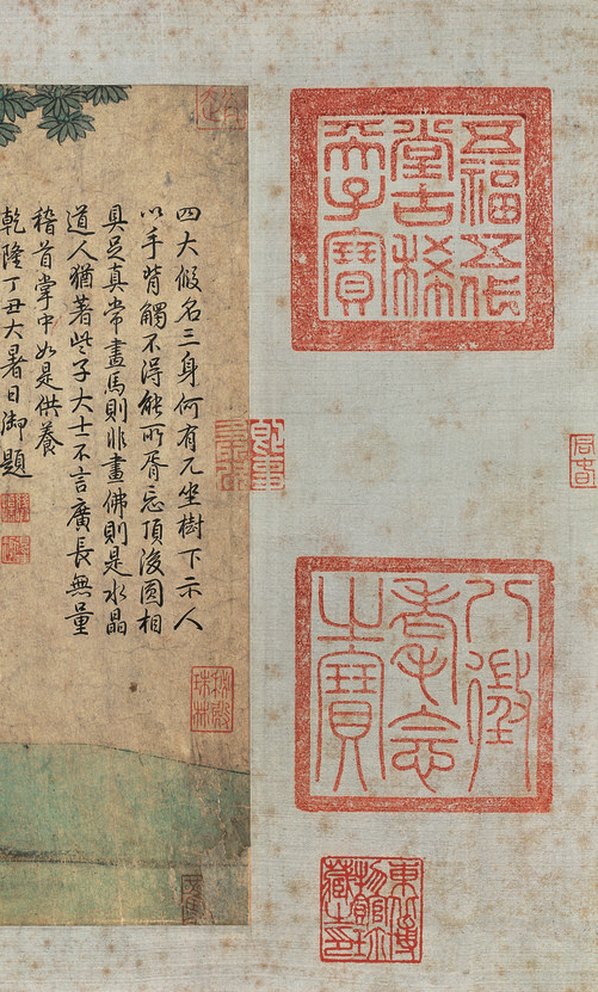 五福五代
堂古稀
天子寶
八徵
耄念
之寶
東北博
物館珍
藏之印
四大假名三身何有兀坐樹下示人
以手背觸不得能所胥忘頂後圓相
具足真常畫馬則非畫佛則是水晶
道人猶著些子大士不言廣長無量
稽首掌中如是供養
乾隆丁丑大暑日御題
秘殿
珠林